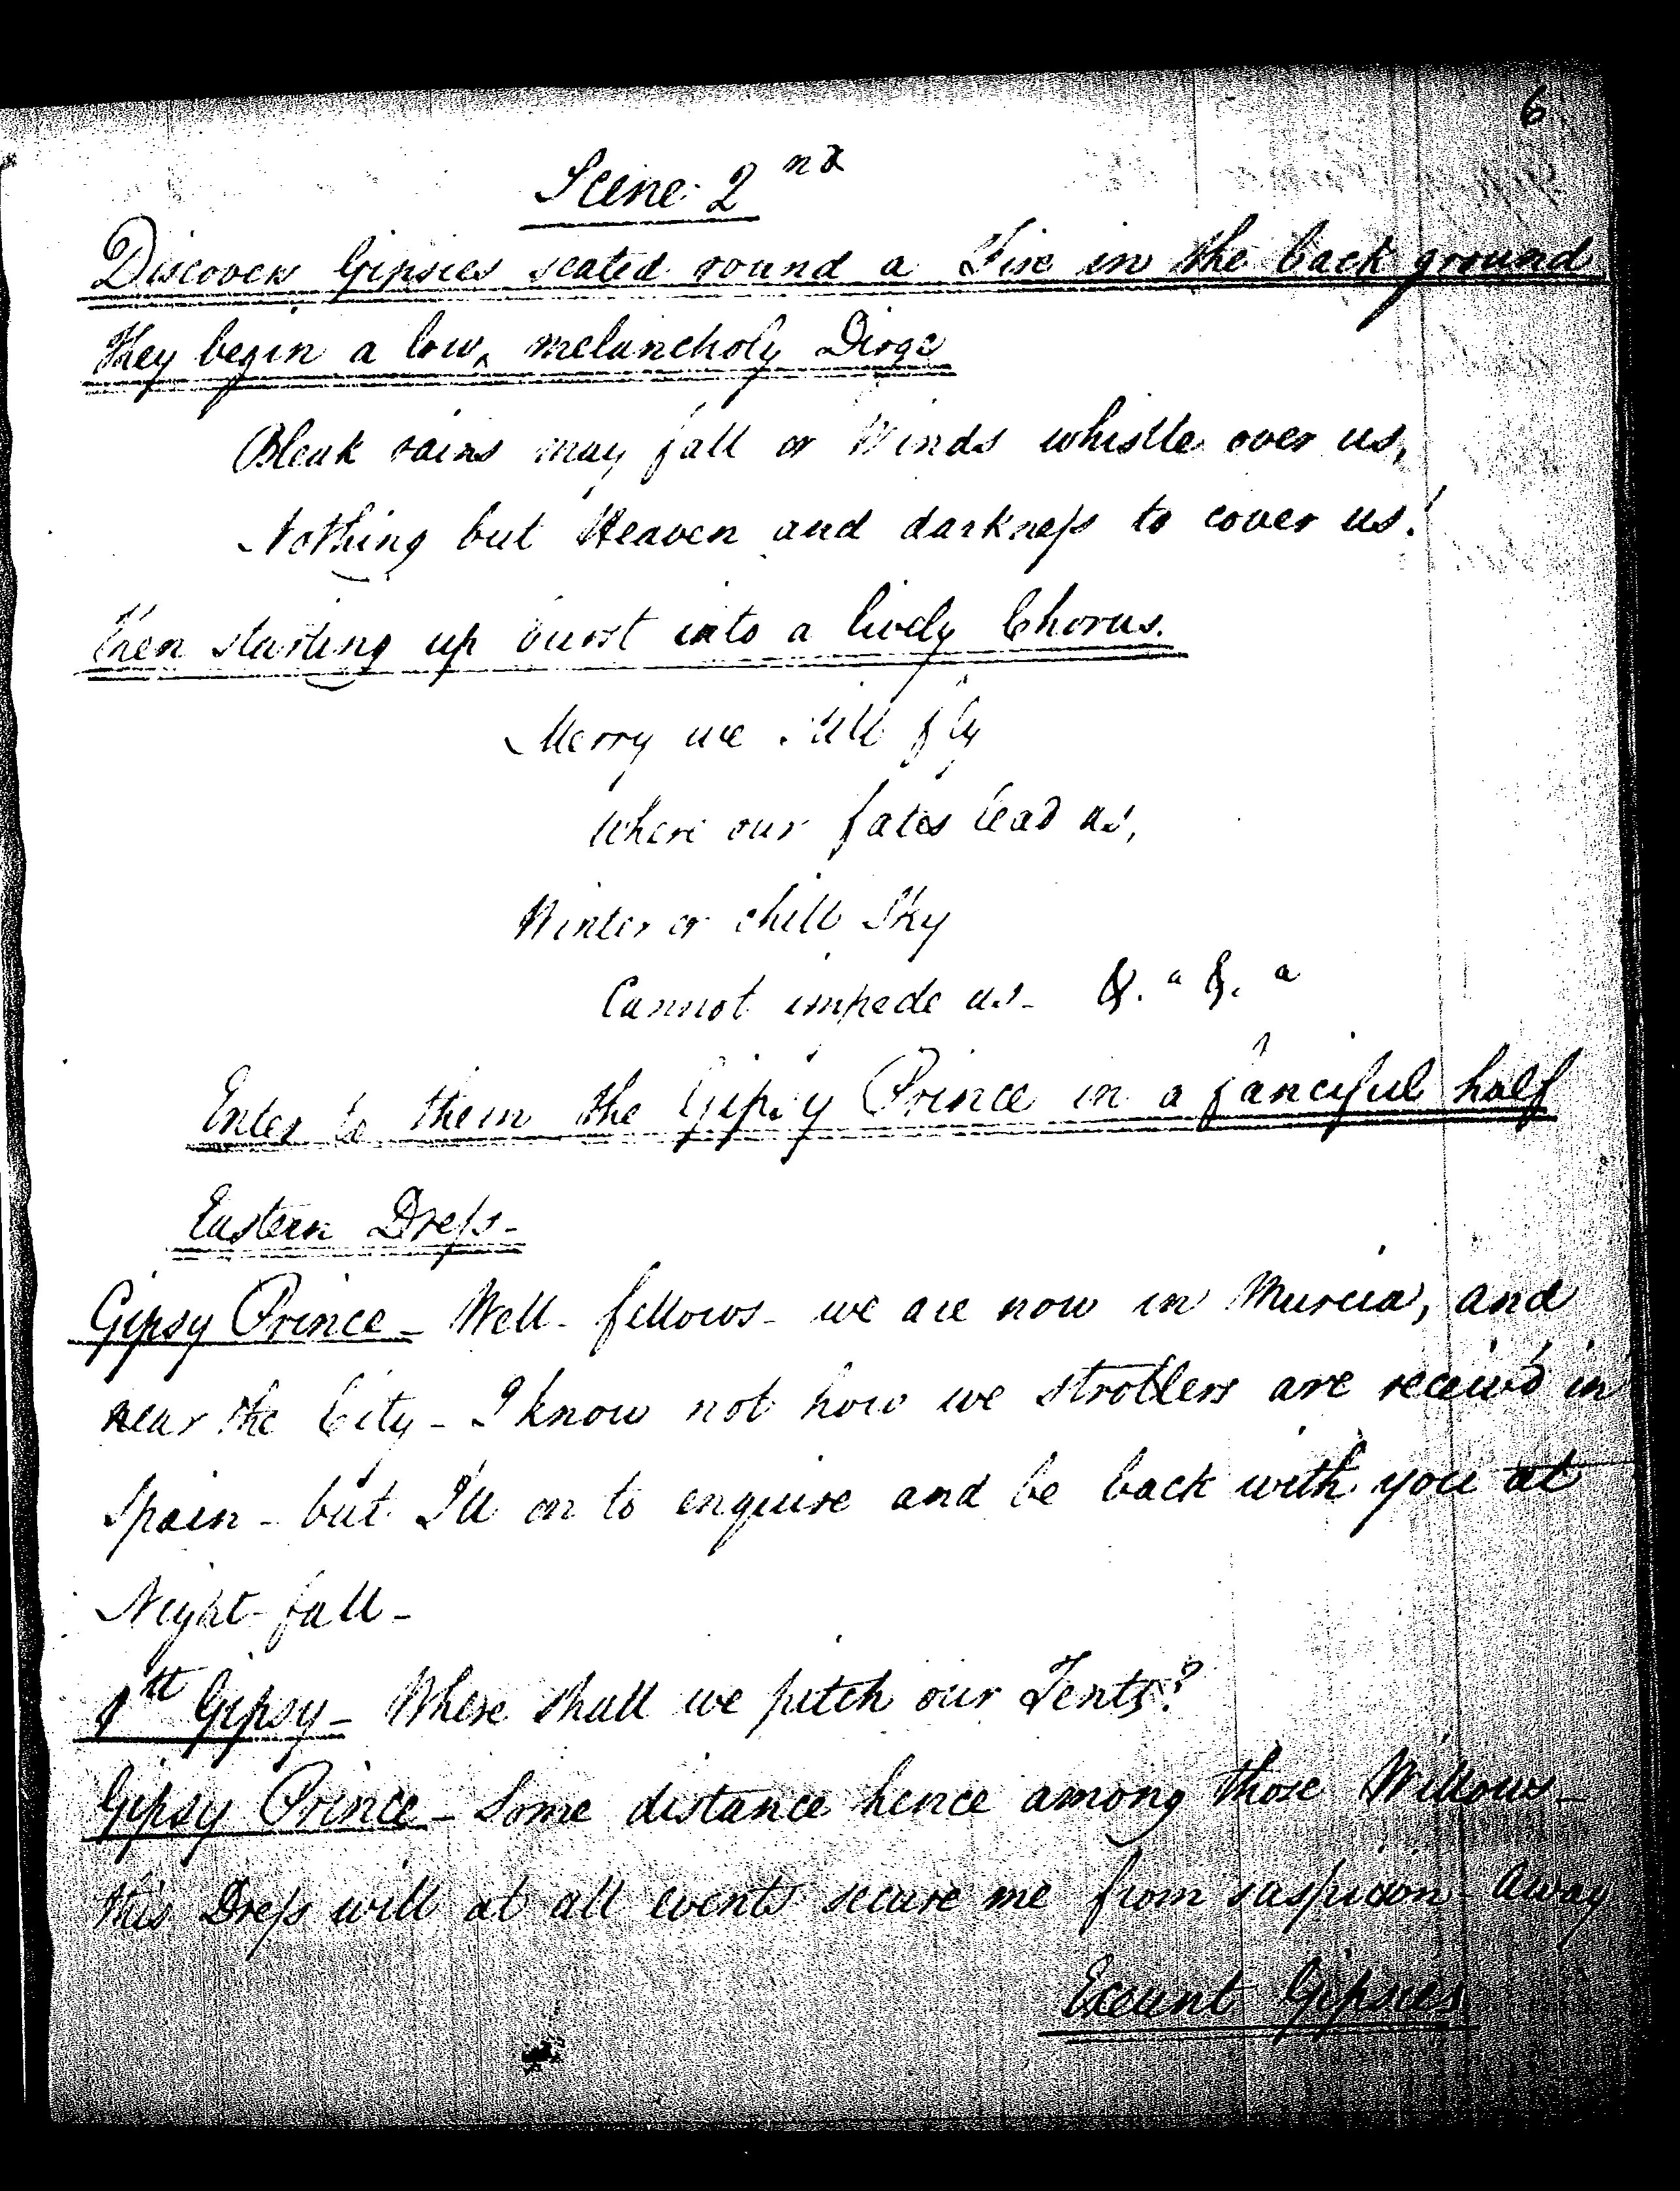 6
Scene. 2nd
Discovers Gipsies seated round a Fire in the back ground
They begin a low, melancholy Dirge
Bleak rains may fall or Winds whistle over us,
Nothing but Heaven and darkness to cover us!
Then starting up burst into a lively Chorus.
Merry we still fly
Where our fates lead us,
Winter or chill Sky
Cannot impede us - &.a &.a
Enter to them the Gipsy Prince in a fanciful half
Eastern Dress -
Gipsy Prince - Well - fellows - we are now in Murcia, and
near the City - I know not how we strollers are receiv'd in
Spain - but I'll on to enquire and be back with you at
Night-fall -
1st Gipsy - Where shall we pitch our Tents?
Gipsy Prince - Some distance hence among those Willows -
this Dress will at all events secure me from suspicion - Away
Exeunt Gipsies